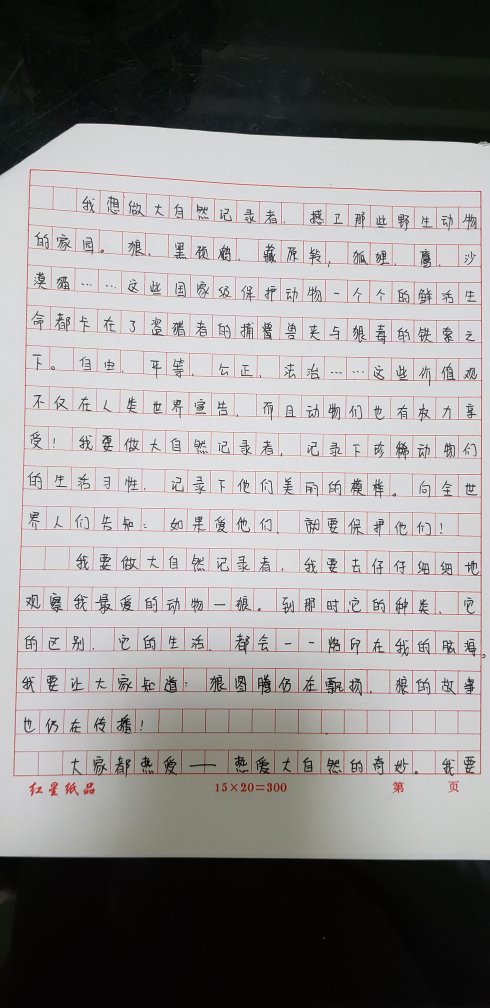 我想做大自然记录者，捍卫那些野生动物
的家园。狼、黑颈鹤、藏原羚，狐狸、鹰、沙
漠猫……这些国家级保护动物一个个的鲜活生
命都卡在了盗猎者的捕兽夹与狠毒的铁索之
下。自由、平等、公正、法治……这些价值观
不仅在人类世界宣告，而且动物们也有权力享
受！我要做大自然记录者，记录下珍稀动物们
的生活习性，记录下他们美丽的模样。向全世
界人们告知：如果爱他们，就要保护他们！
我要做大自然记录者，我要去仔仔细细地
观察我最爱的动物一狼。到那时，它的种类、它
的区别、它的生活，都会一一烙印在我的脑海。
我要让大家知道：狼图腾仍在飘扬，狼的故事
也仍在传播！
大家都热爱——热爱大自然的奇妙。我要
红星纸品 15×20=300 第 页